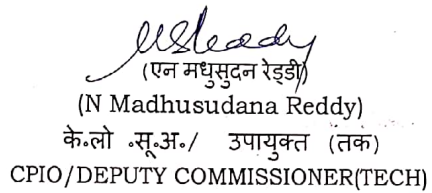 (एन मधुसुदन रेड्डी)
(N Madhusudana Reddy)
के॰लो ॰सू॰अ॰/ उपायुक्त (तक)
CPIO/DEPUTY COMMISSIONER(TECH)